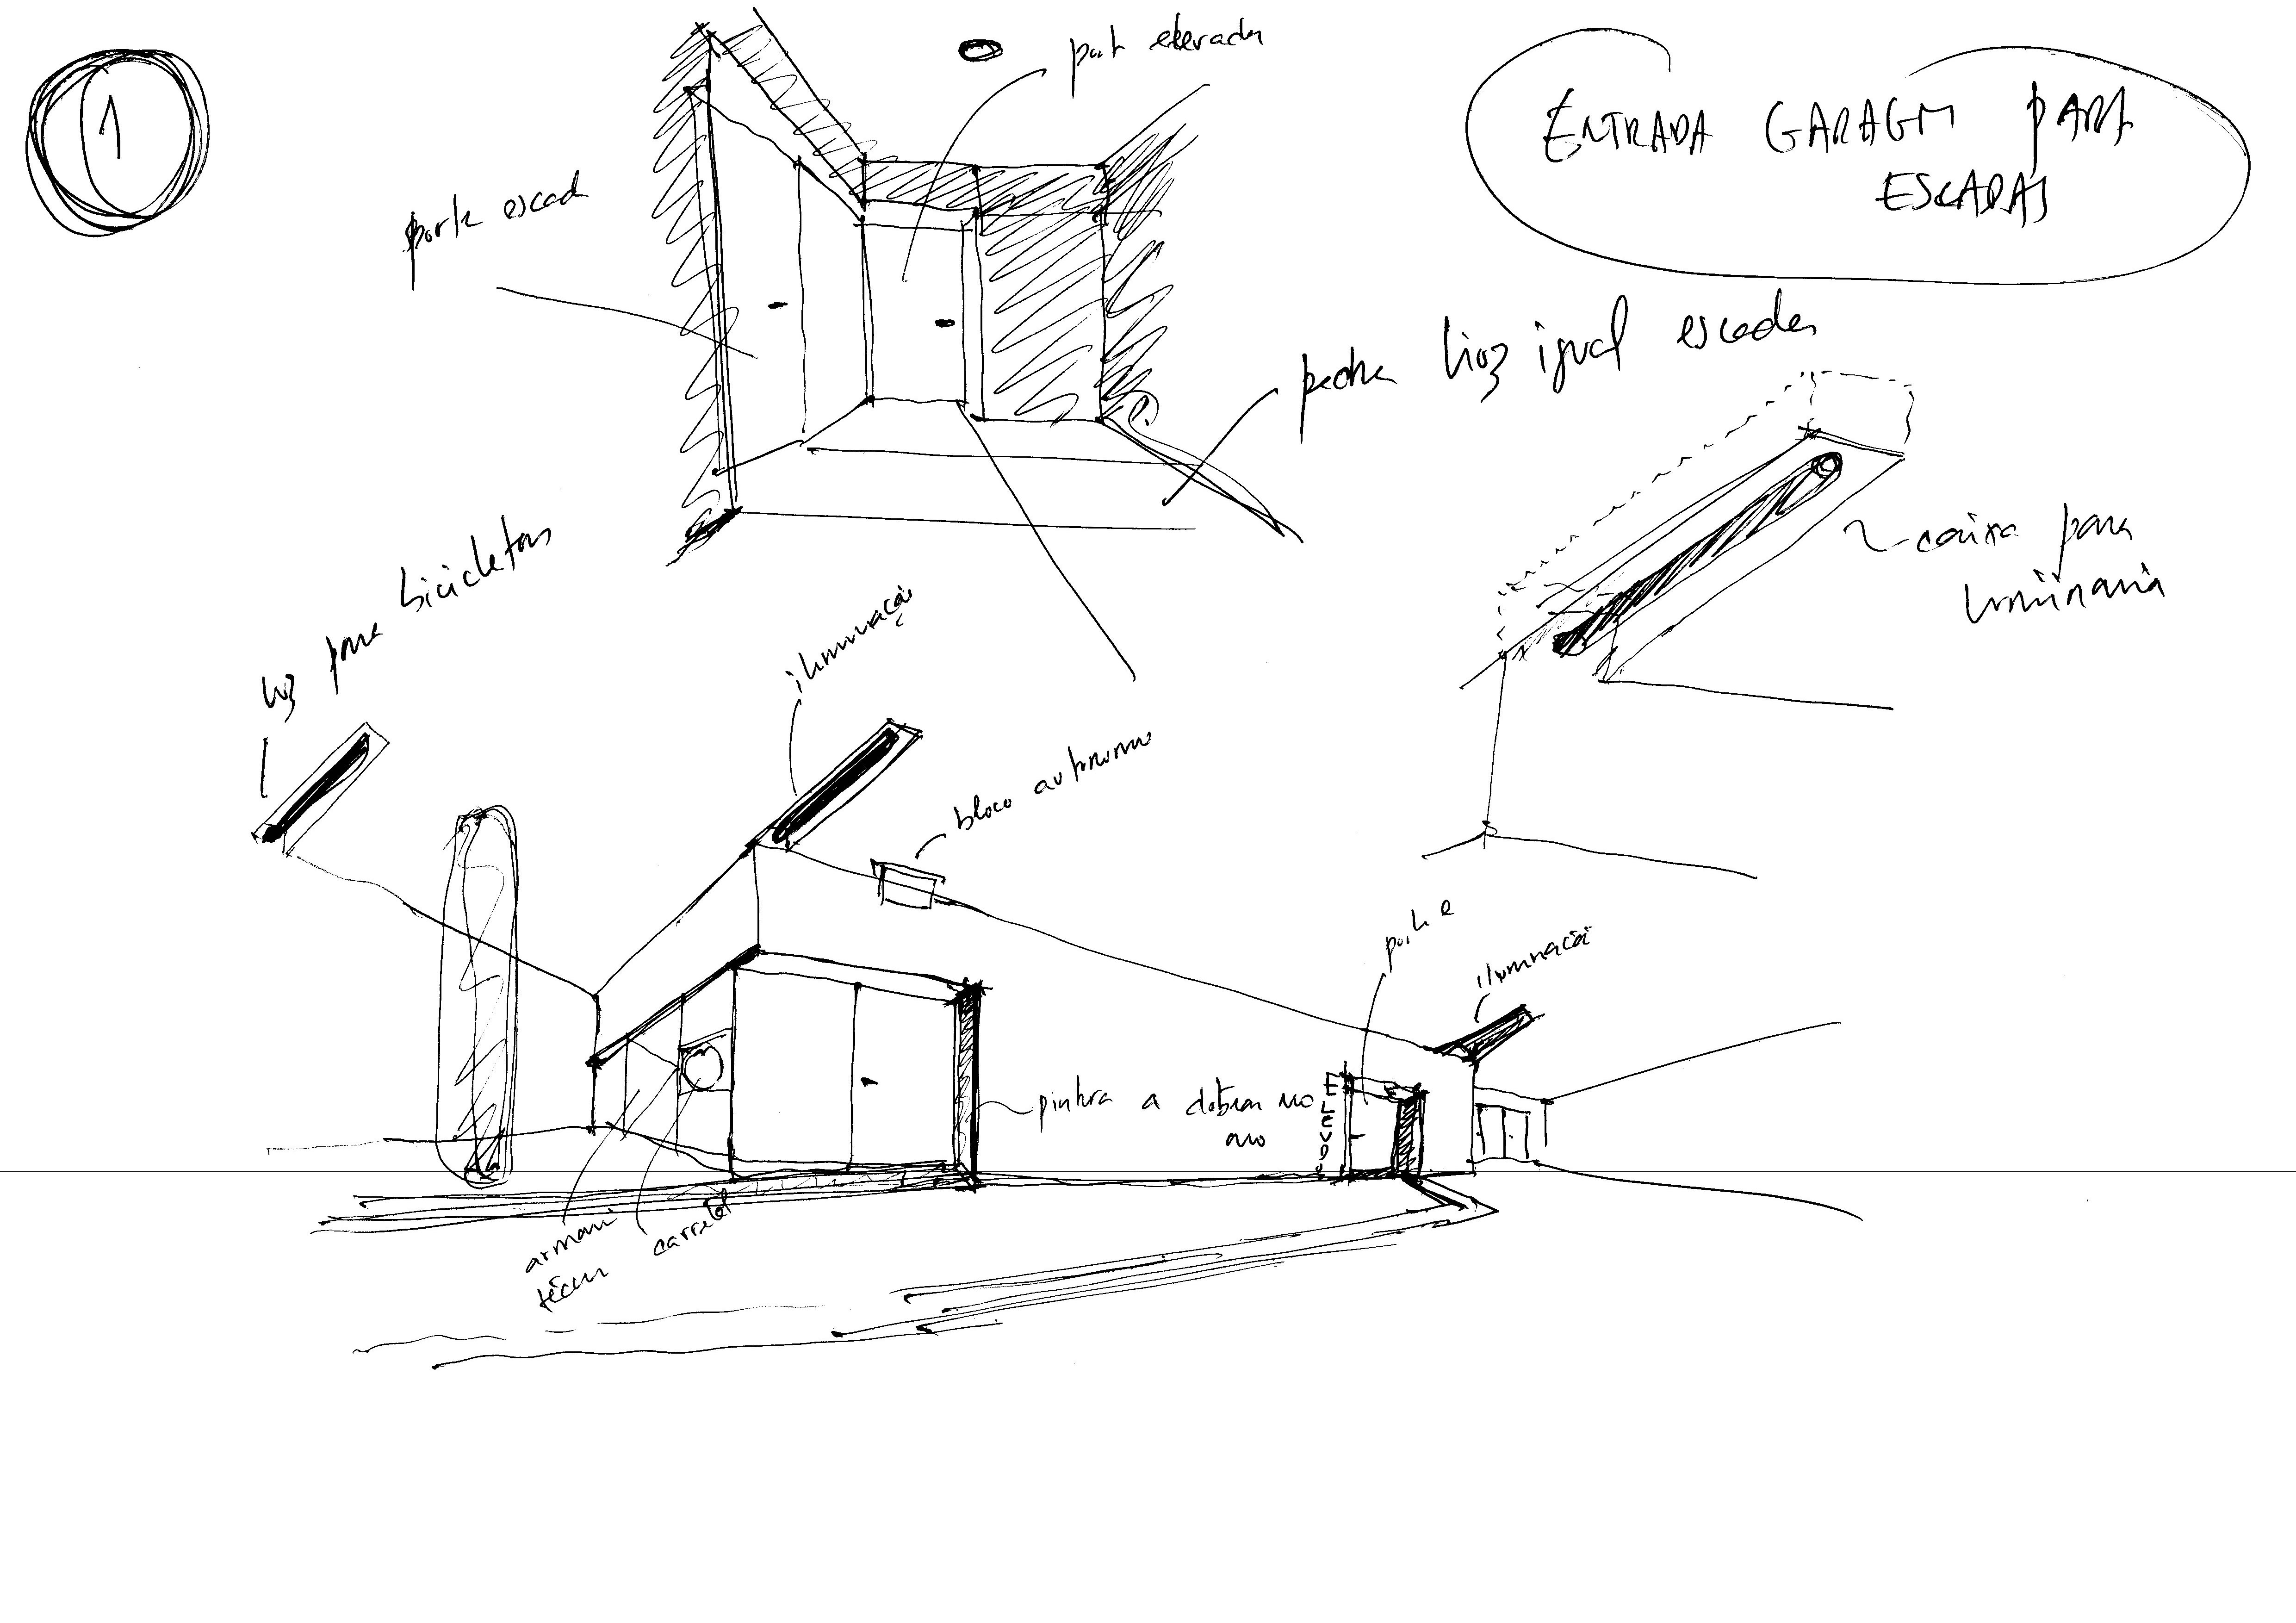 1
port elevador
ENTRADA GARAGM PARA
ESCADAS
porta escad
pedra lioz igual escadas
caixa para
luminaria
luz para bicicletas
iluminação
bloco autonomo
porta e
iluminação
pintura a dobrar no
ELEVD
armari
técni
carretel